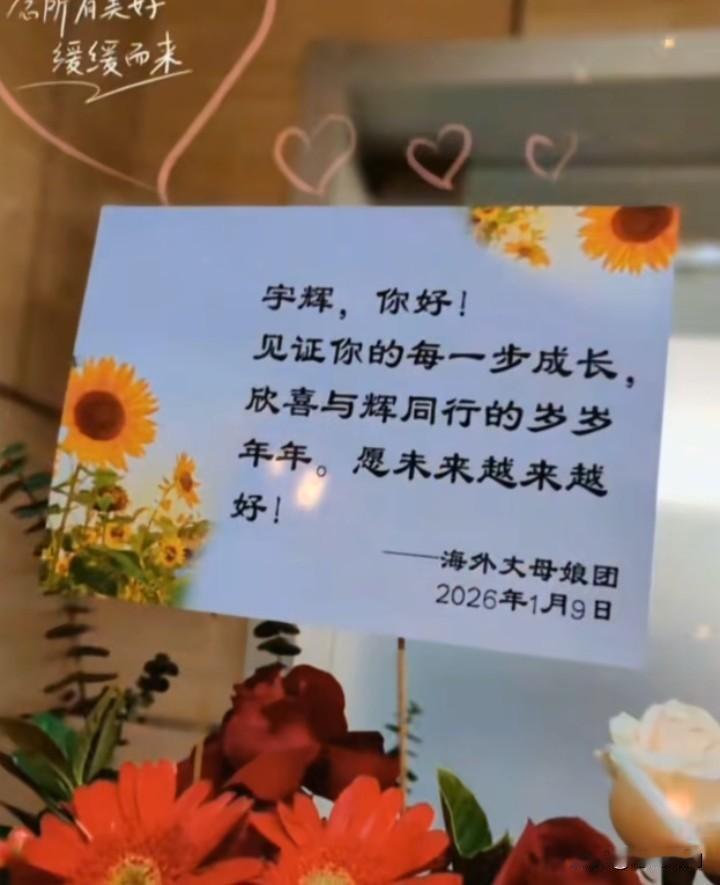 所有美好
缓缓而来
宇辉，你好！
见证你的每一步成长，
欣喜与辉同行的岁岁
年年。愿未来越来越
好！
——海外丈母娘团
2026年1月9日